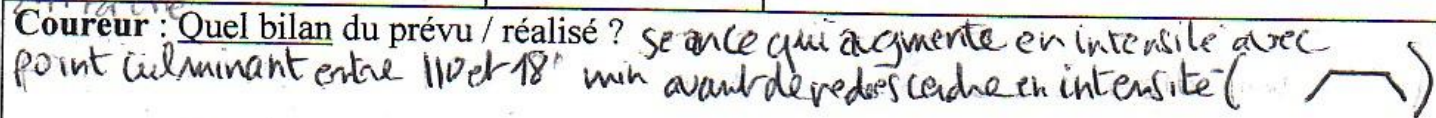 Coureur : Quel bilan du prévu / réalisé ? seance qui augmente en intensité avec
point culminant entre 110 et 18' min avant de redescendre en intensité ( )